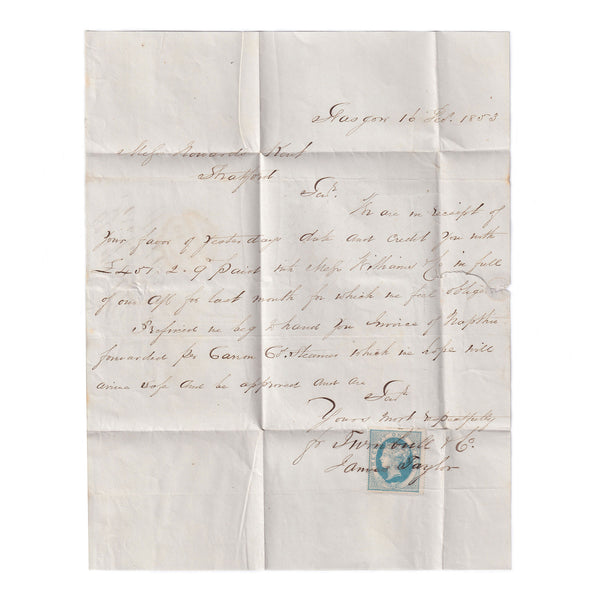 Glasgow 16 Feb. 1853
Messrs Howards Kent
Stratford
Sirs.
We are in receipt of
Your favor of yesterdays date and credit you with
£451.2.9 paid into Messrs Williams & Co in full
of our a/c for last month for which we feel obliged
Prefixed we beg to hand you Invoice of Naptha
forwarded per Carron Co. Steamer which we hope will
arrive safe and be approved and are
Sirs
Yours most respectfully
pr Turnbull & Co.
James Taylor